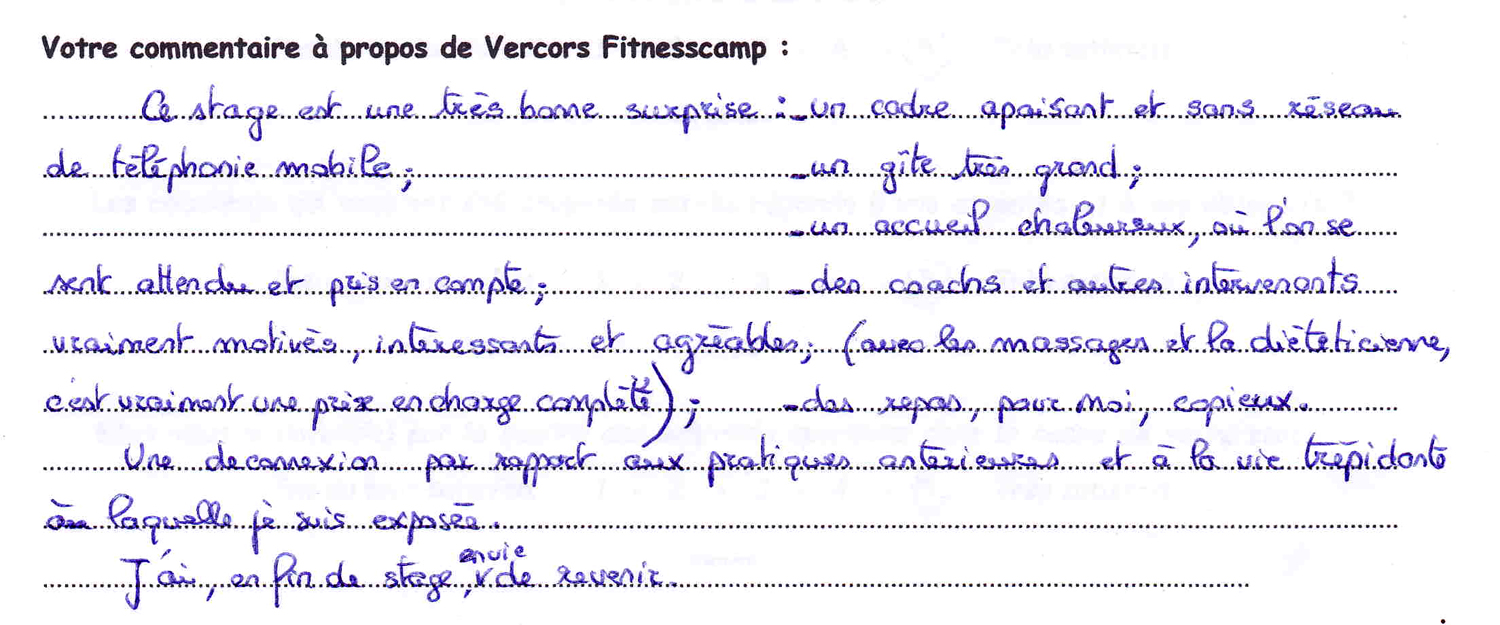 Votre commentaire à propos de Vercors Fitnesscamp :
Ce stage est une très bonne surprise : - un cadre apaisant et sans réseau
de téléphonie mobile ; - un gîte très grand ;
- un accueil chaleureux, où l'on se
sent attendu et pris en compte ; - des coachs et autres intervenants
vraiment motivés, intéressants et agréables ; (avec les massages et la diététicienne,
c'est vraiment une prise en charge complète) ; - des repas, pour moi, copieux.
Une deconnexion par rapport aux pratiques antérieures et à la vie trépidante
à laquelle je suis exposée.
J'ai, en fin de stage, envie de revenir.